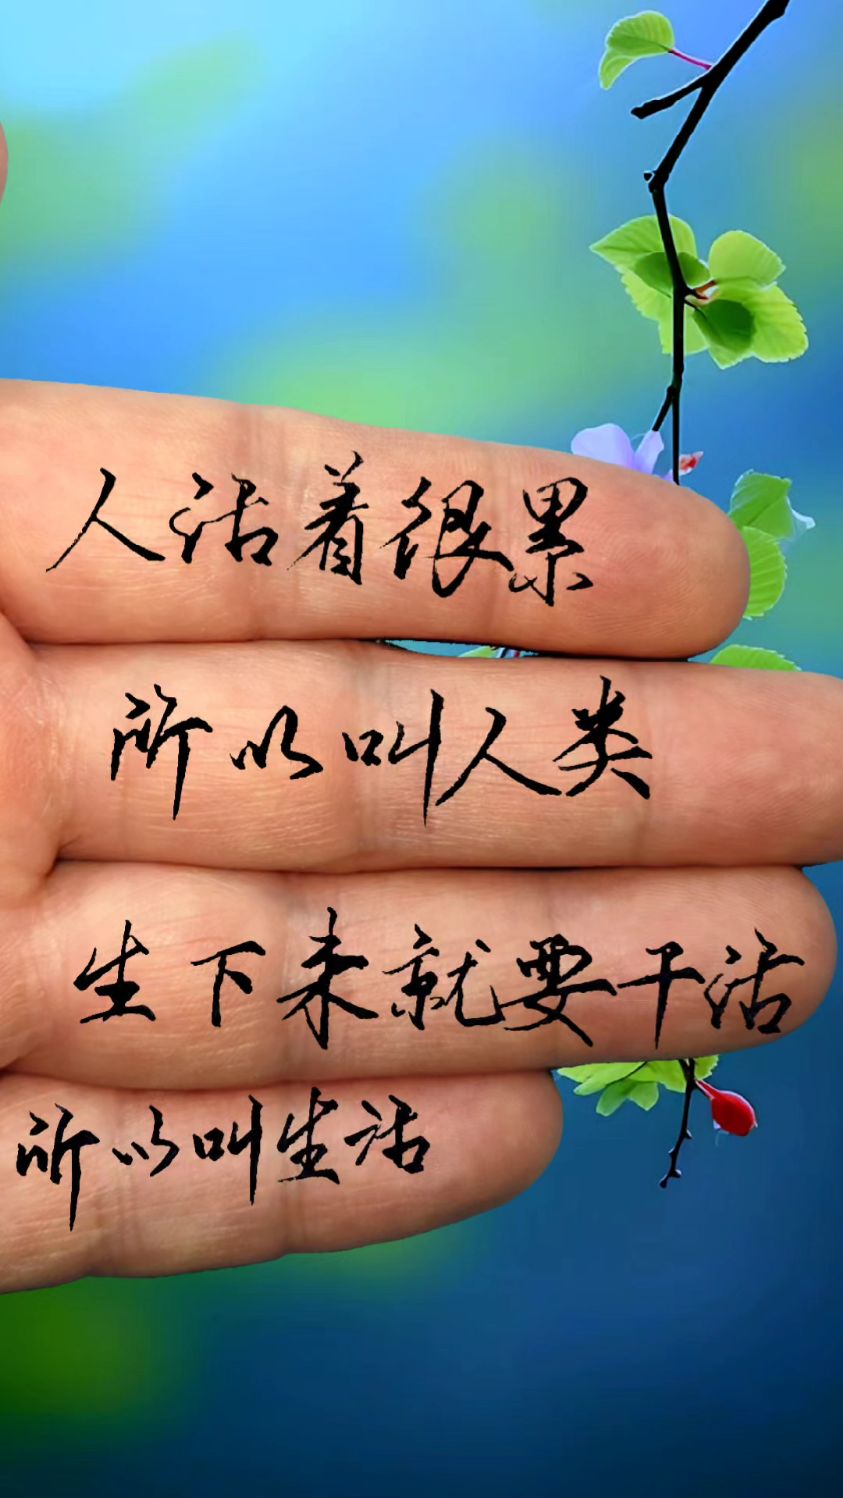 人活着很累
所以叫人类
生下来就要干活
所以叫生活